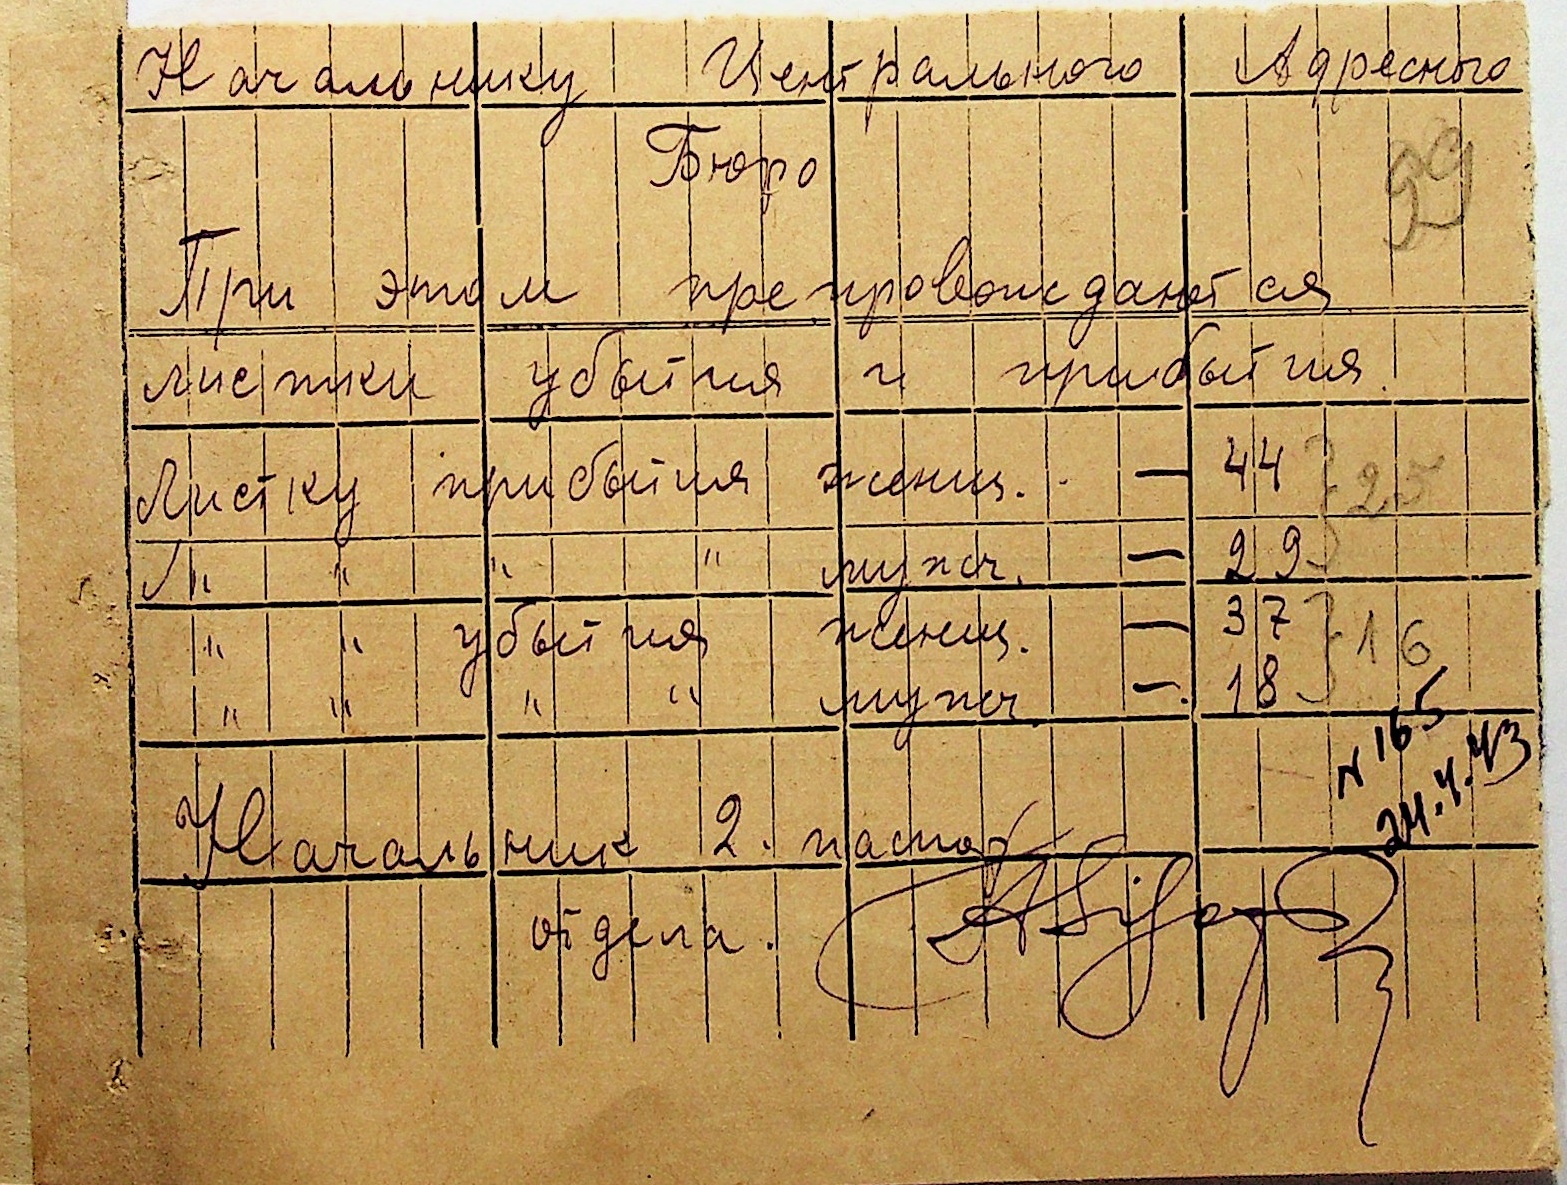 Начальнику Центрального Адресного
Бюро
99
При этом препровождаются
листки убытия и прибытия.
Листку прибытия женщ. — 44 } 25
Л " " " " мужч. — 29
" " убытия женщ. — 37 } 16
" " " " мужч. — 18
N 165
24.4.43
Начальник 2. паспор
отдела.